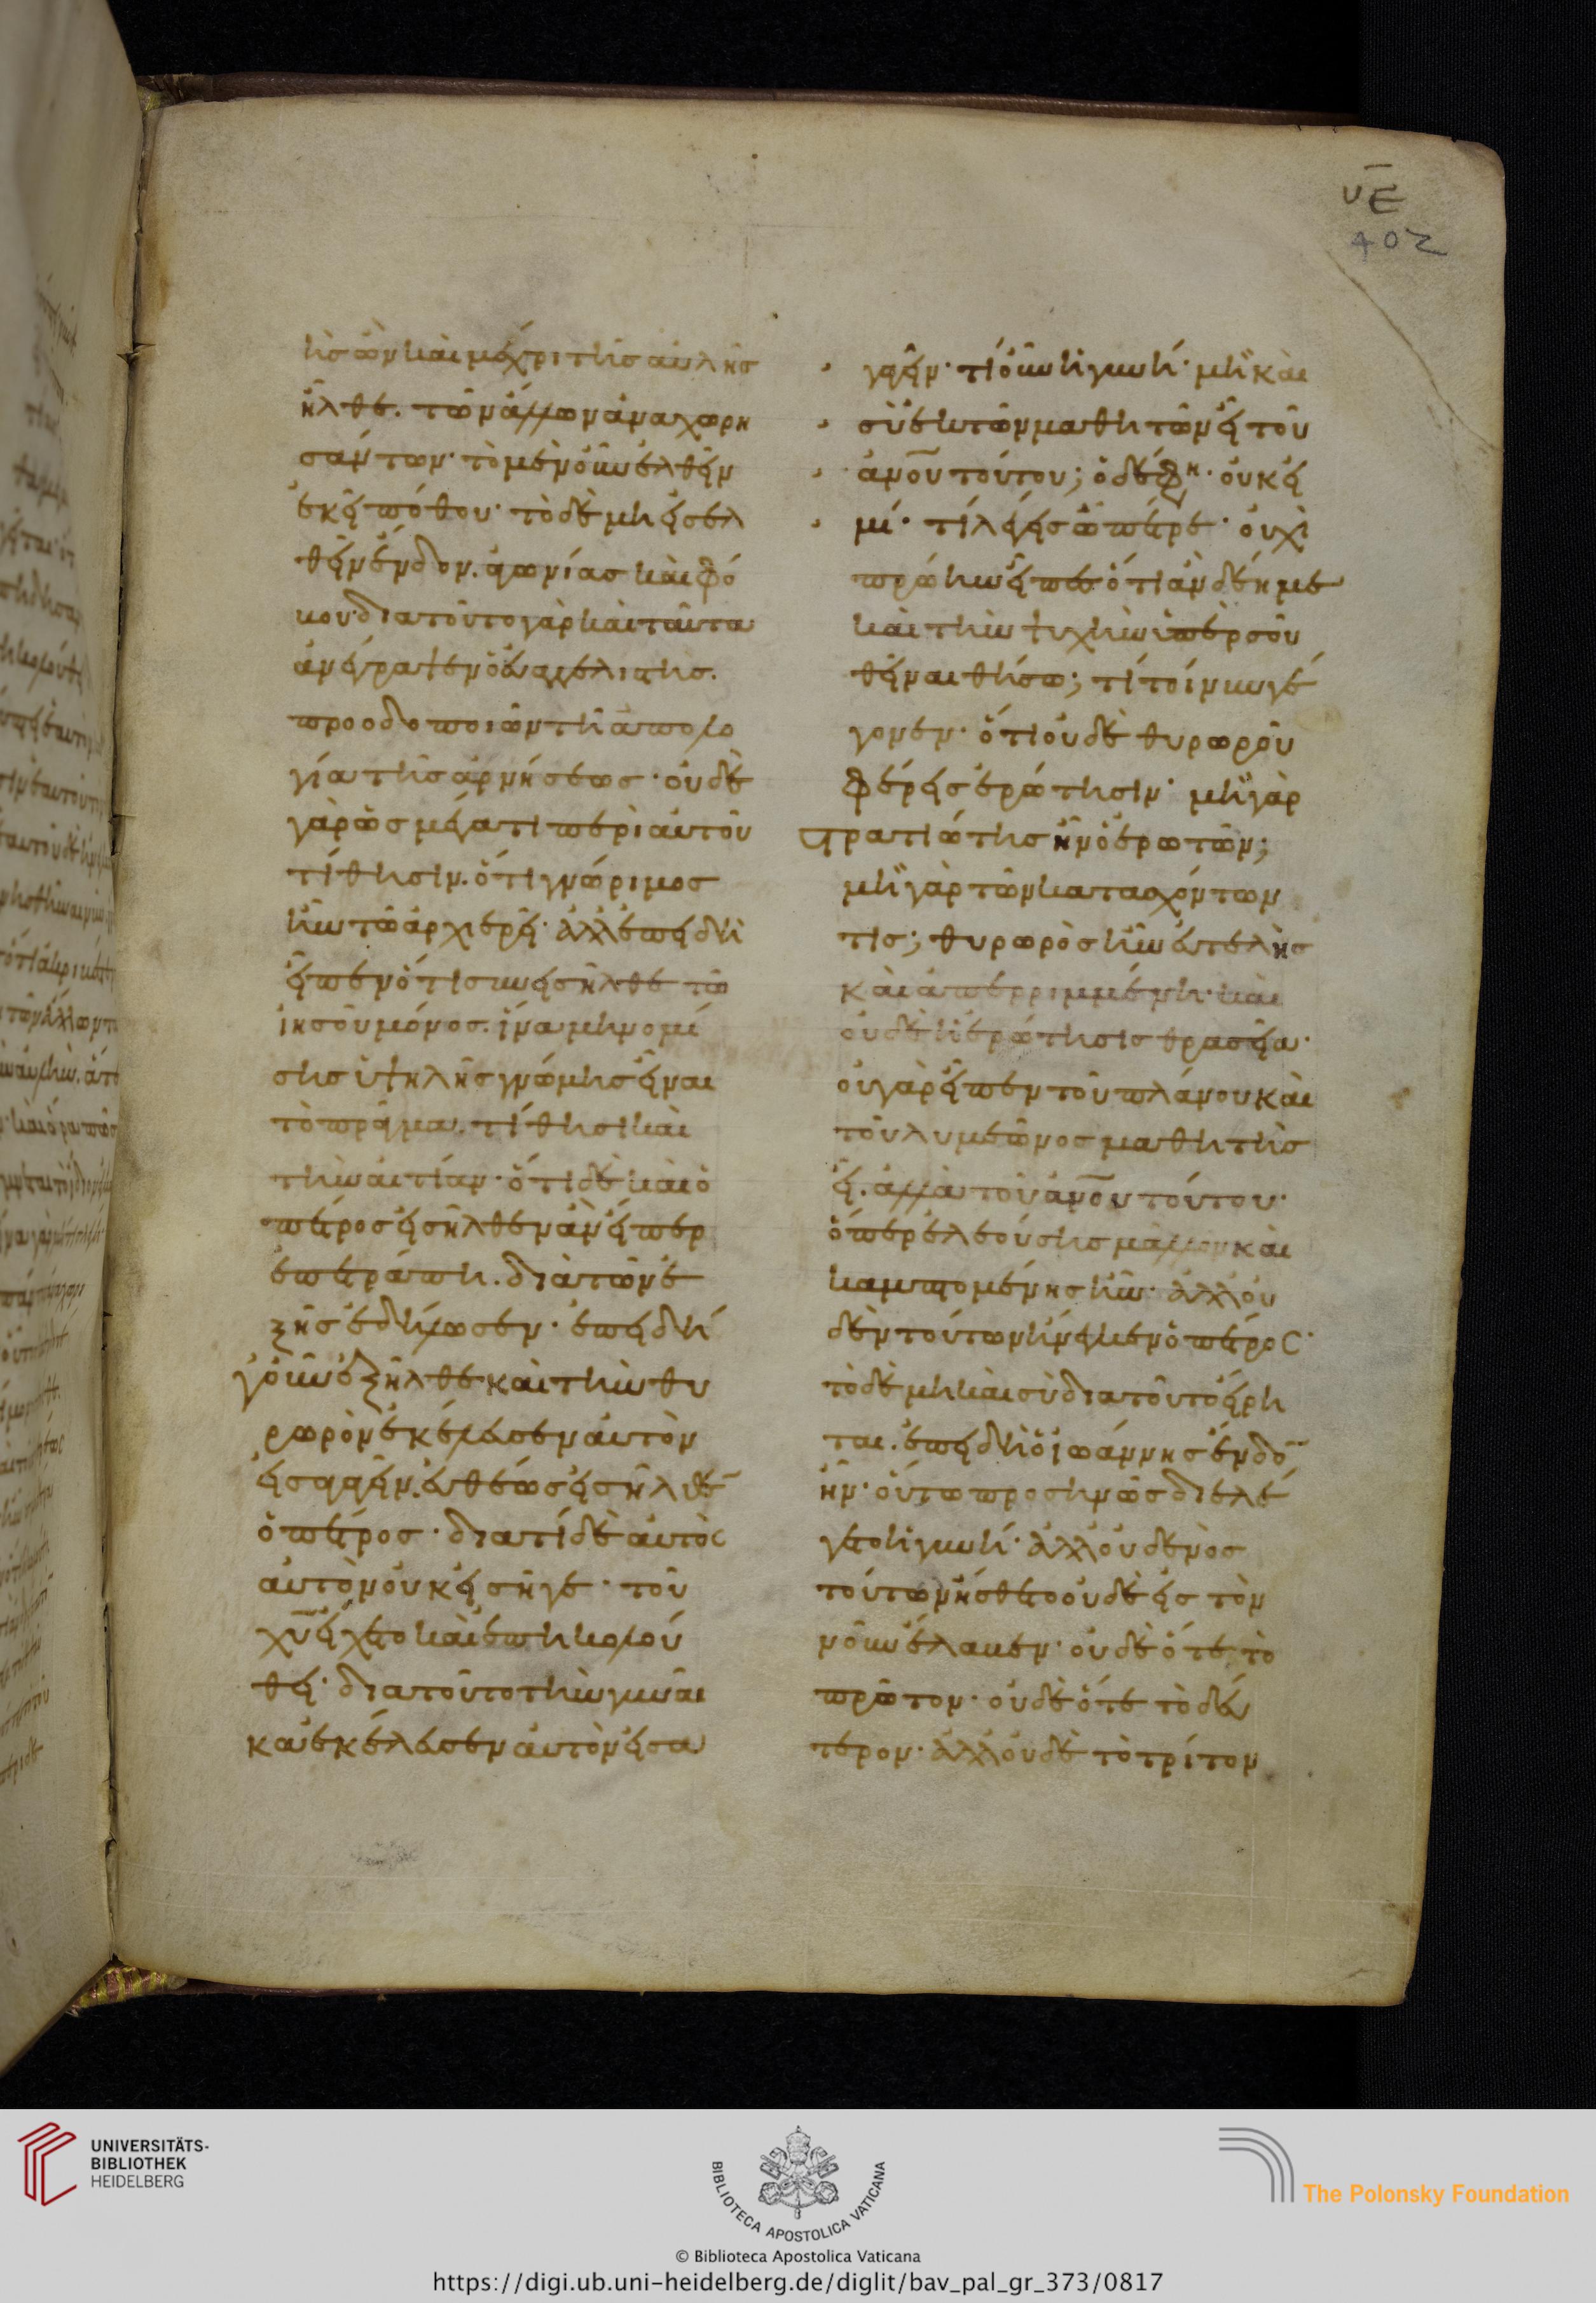 ῡε
402
ἧς ὢν καὶ μέχρι τῆς αὐλῆς
ἦλθε. τῶν ἄλλων ἀναχωρη
σάντων· τὸ μὲν οὖν ἐλθεῖν
ἐκεῖ πόθου· τὸ δὲ μὴ εἰσελ
θεῖν ἔνδον. ἀγωνίας καὶ φό
βου· διατοῦτο γὰρ καὶ ταῦτα
ἀνέγραψεν ὁ εὐαγγελιστής.
προοδοποιῶν τῆ ἀπολο
γία τῆς ἀρνήσεως· οὐδὲ
γὰρ ὡς μέγα τι περὶ αὐτοῦ
τίθησιν. ὅτι γνώριμος
ἦν τῶ ἀρχιερεῖ· ἀλλ' ἐπειδὴ
εἶπεν ὅτι συνεισῆλθε τῶ
ἰησοῦ μόνος. ἵνα μὴ νομί
σης ὑψηλῆς γνώμης εἶναι
τὸ πρᾶγμα. τίθησι καὶ
τὴν αἰτίαν· ὅτι δὲ καὶ ὁ
πέτρος εἰσῆλθεν ἂν εἴπερ
ἐπετράπη. διὰ τῶν ἑ
ξῆς ἐδήλωσεν· ἐπειδή
γοῦν ἐξῆλθε καὶ τὴν θυ
ρωρὸν ἐκέλευσεν αὐτὸν
εἰσαγαγεῖν. εὐθέως εἰσῆλθε̄
ὁ πέτρος· διατί δὲ αὐτὸς
αὐτὸν οὐκ εἰσῆγε· τοῦ
χῡ εἴχετο καὶ ἐπηκολού
θει· διατοῦτο τὴν γυναῖ
κα ἐκέλευσεν αὐτὸν εἰσα
γαγεῖν· τί οὖν ἡ γυνή· μὴ καὶ
σὺ ἐκ τῶν μαθητῶν εἶ τοῦ
ἀν̅ο̅υ τούτου; ὁ δέ φη· οὐκ εἰ
μί· τί λέγεις ὦ πέτρε· οὐχὶ
πρώην εἶπες ὅτι ἂν δέη με
καὶ τὴν ψυχὴν ὑπὲρ σοῦ
θεῖναι θήσω; τί τοίνυν γέ
γονεν· ὅτι οὐδὲ θυρωροῦ
φέρεις ἐρώτησιν· μὴ γὰρ
στρατιώτης ἦν ὁ ἐρωτῶν;
μὴ γὰρ τῶν κατασχόντων
τις; θυρωρὸς ἦν εὐτελὴς
καὶ ἀπερριμμένη· καὶ
οὐδὲ ἡ ἐρώτησις θρασεῖα·
οὐ γὰρ εἶπεν τοῦ πλάνου καὶ
τοῦ λυμεῶνος μαθητὴς
εἶ. ἀλλὰ τοῦ ἀν̅ο̅υ τούτου·
ὅπερ ἐλεούσης μᾶλλον καὶ
καμπτομένης ἦν· ἀλλ' οὐ
δὲν τούτων ἤνεγκεν ὁ πέτρος·
τὸ δὲ μὴ καὶ σὺ διατοῦτο εἴρη
ται. ἐπειδὴ ὁ ἰωάννης ἔνδο̄
ἦν· οὕτω προσηνῶς διελέ
γετο ἡ γυνή· ἀλλ' οὐδενὸς
τούτων ἤσθετο οὐδὲ εἰς τὸν
νοῦν ἔλαβεν· οὐδὲ ὅτε τὸ
πρῶτον· οὐδὲ ὅτε τὸ δεύ
τερον· ἀλλ' οὐδὲ τὸ τρίτον
UNIVERSITÄTS-
BIBLIOTHEK
HEIDELBERG
BIBLIOTECA APOSTOLICA VATICANA
The Polonsky Foundation
© Biblioteca Apostolica Vaticana
https://digi.ub.uni-heidelberg.de/diglit/bav_pal_gr_373/0817